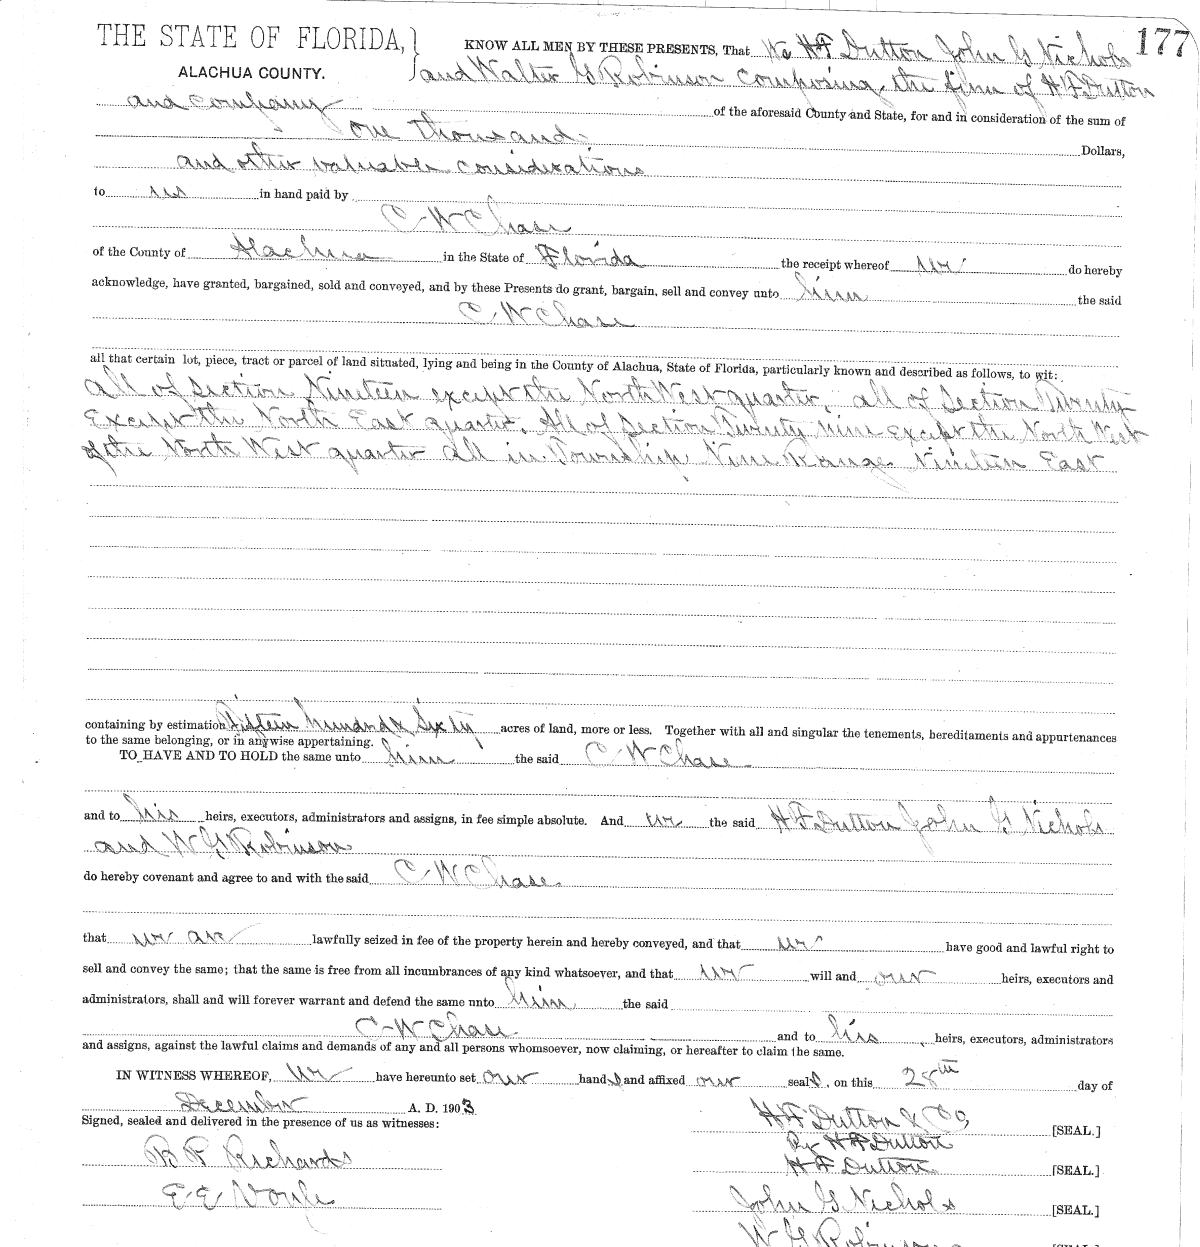 177
THE STATE OF FLORIDA,
ALACHUA COUNTY.
KNOW ALL MEN BY THESE PRESENTS, That We H F Dutton John G Nichols
and Walter G Robinson composing the firm of H F Dutton
and company of the aforesaid County and State, for and in consideration of the sum of
one thousand Dollars,
and other valuable considerations
to us in hand paid by
C W Chase
of the County of Alachua in the State of Florida the receipt whereof we do hereby
acknowledge, have granted, bargained, sold and conveyed, and by these Presents do grant, bargain, sell and convey unto him the said
C W Chase
all that certain lot, piece, tract or parcel of land situated, lying and being in the County of Alachua, State of Florida, particularly known and described as follows, to wit:
All of Section Nineteen except the North West quarter, all of Section Twenty
Except the North East quarter, All of Section Twenty Nine Except the North West
of the North West quarter all in Township Nine Range Nineteen East
containing by estimation Fifteen hundred & Sixty acres of land, more or less. Together with all and singular the tenements, hereditaments and appurtenances
to the same belonging, or in anywise appertaining.
TO HAVE AND TO HOLD the same unto him the said C W Chase
and to his heirs, executors, administrators and assigns, in fee simple absolute. And we the said H F Dutton John G Nichols
and W G Robinson
do hereby covenant and agree to and with the said C W Chase
that we are lawfully seized in fee of the property herein and hereby conveyed, and that we have good and lawful right to
sell and convey the same; that the same is free from all incumbrances of any kind whatsoever, and that we will and our heirs, executors and
administrators, shall and will forever warrant and defend the same unto him the said
C-W Chase and to his heirs, executors, administrators
and assigns, against the lawful claims and demands of any and all persons whomsoever, now claiming, or hereafter to claim the same.
IN WITNESS WHEREOF, We have hereunto set our hands and affixed our seals, on this 28th day of
December A. D. 1903
Signed, sealed and delivered in the presence of us as witnesses:
H F Dutton & Co, [SEAL.]
By H F Dutton
B P Richards
H F Dutton [SEAL.]
E E Voyle
John G Nichols [SEAL.]
W G Robinson [SEAL.]